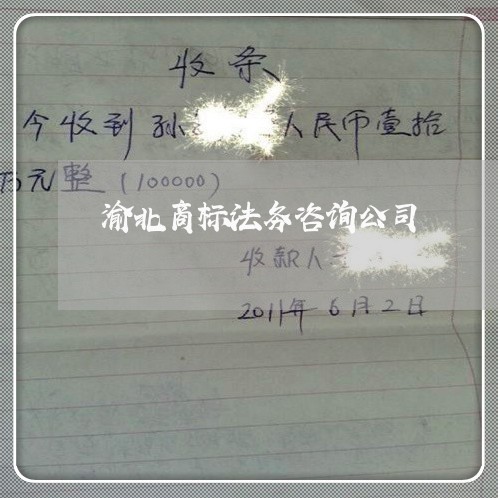 收条
今收到孙人民币壹拾
万元整(100000)
渝北商标法务咨询公司
收款人
2011年6月2日